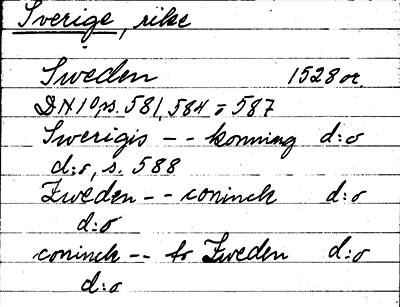 Sverige, rike
Sweden 1528 or.
DN 10, s. 581, 584 o 587
Swerigis -- konning d:o
d:o, s. 588
Zweden -- coninck d:o
d:o
coninck -- to Zweden d:o
d:o